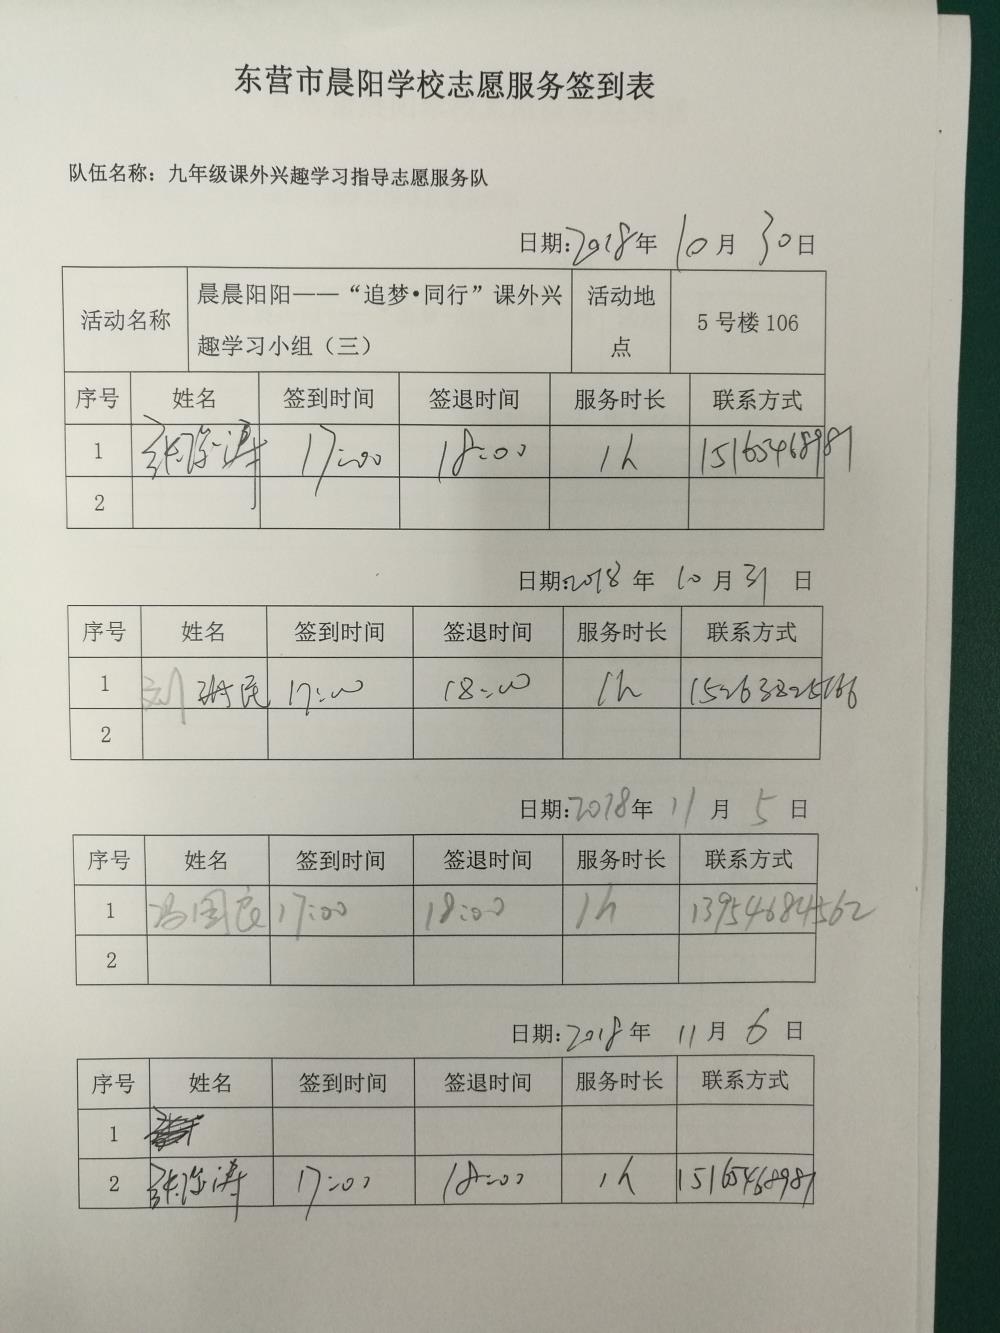 东营市晨阳学校志愿服务签到表
队伍名称：九年级课外兴趣学习指导志愿服务队
日期:2018年 10月 30日
活动名称 晨晨阳阳——“追梦•同行”课外兴趣学习小组（三） 活动地点 5号楼106
序号 姓名 签到时间 签退时间 服务时长 联系方式
1 17:00 18:00 1h 15165468981
2
日期:2018年 10月31 日
序号 姓名 签到时间 签退时间 服务时长 联系方式
1 刘 民 17:00 18:00 1h 15263825166
2
日期:2018年 11月 5日
序号 姓名 签到时间 签退时间 服务时长 联系方式
1 冯国良 17:00 18:00 1h 13954684562
2
日期:2018年 11月 6日
序号 姓名 签到时间 签退时间 服务时长 联系方式
1
2 17:00 18:00 1h 15165468981